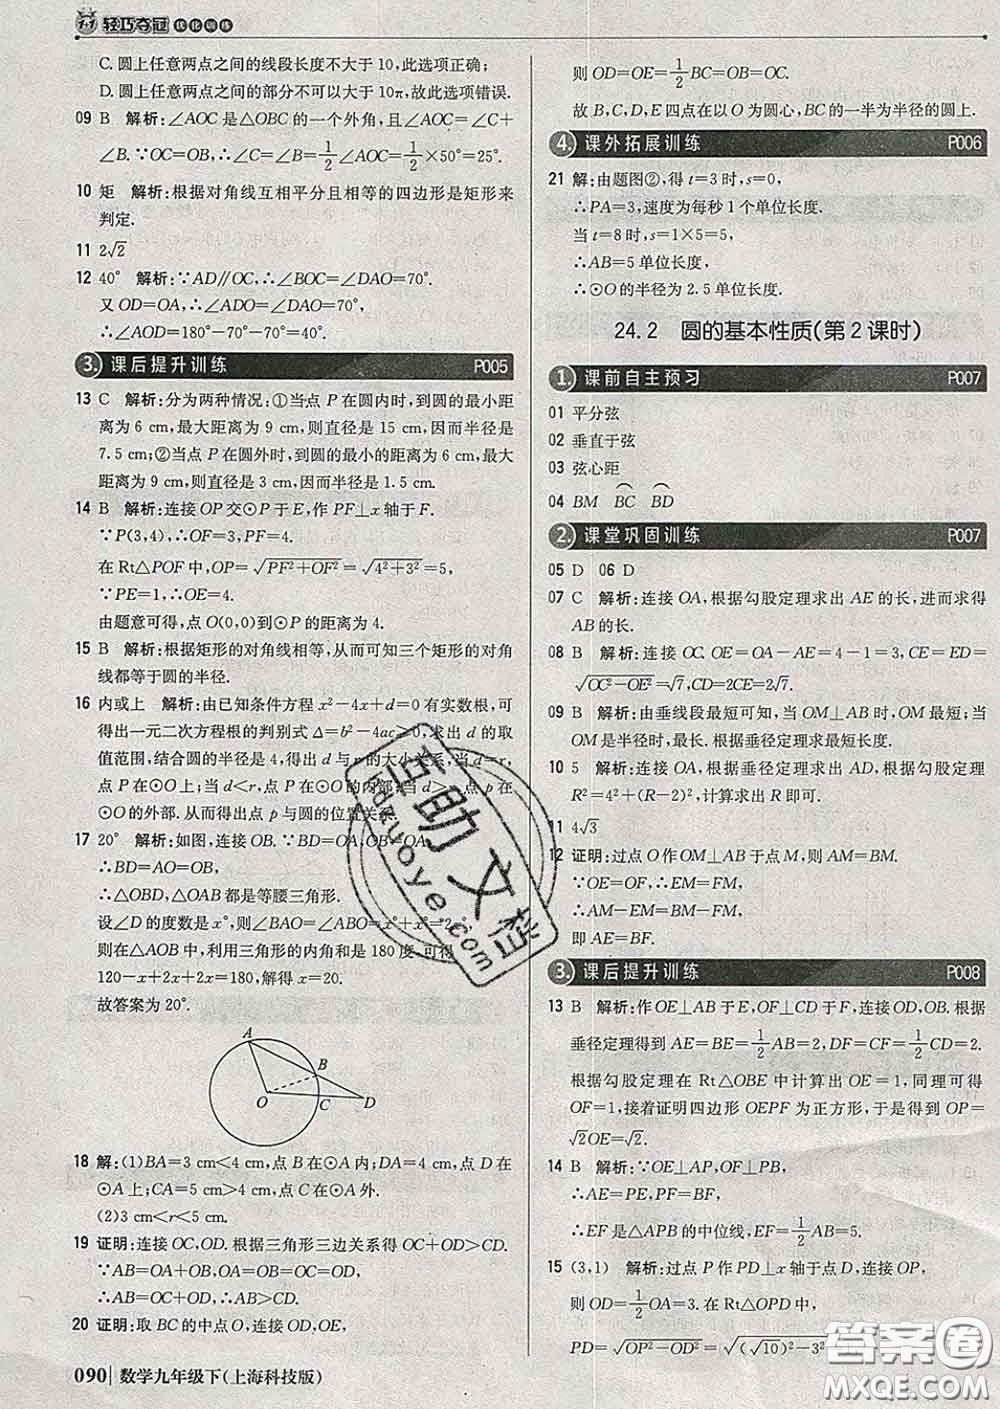 1+1 轻巧夺冠 优化训练
C. 圆上任意两点之间的线段长度不大于 10,此选项正确;
D. 圆上任意两点之间的部分不可以大于 10π,故此选项错误.
09 B 解析:∠AOC 是△OBC 的一个外角,且∠AOC=∠C+
∠B. ∵OC=OB,∴∠B=1/2∠AOC=1/2×50°=25°.
10 矩 解析:根据对角线互相平分且相等的四边形是矩形来
判定.
11 2√2
12 40° 解析:∵AD∥OC,∴∠BOC=∠DAO=70°.
又 OD=OA,∴∠ADO=∠DAO=70°,
∴∠AOD=180°-70°-70°=40°.
3. 课后提升训练 P005
13 C 解析:分为两种情况:①当点 P 在圆内时,到圆的最小距
离为 6 cm,最大距离为 9 cm,则直径是 15 cm,因而半径是
7.5 cm;②当点 P 在圆外时,到圆的最小的距离为 6 cm,最
大距离为 9 cm,则直径是 3 cm,因而半径是 1.5 cm.
14 B 解析:连接 OP 交⊙P 于 E,作 PF⊥x 轴于 F.
∵P(3,4),∴OF=3,PF=4.
在 Rt△POF 中,OP=√(PF²+OF²)=√(4²+3²)=5,
∵PE=1,∴OE=4.
由题意可得,点 O(0,0)到⊙P 的距离为 4.
15 B 解析:根据矩形的对角线相等,从而可知三个矩形的对角
线都等于圆的半径.
16 内或上 解析:由已知条件方程 x²-4x+d=0 有实数根,可
得出一元二次方程根的判别式 Δ=b²-4ac≥0,求出 d 的取
值范围,结合圆的半径是 4,得出 d 与 r 的大小关系,当 d=r,
点 p 在⊙O 上;当 d<r,点 p 在⊙O 的内部,当 d> 点 p 在
⊙O 的外部. 从而得出点 p 与圆的位置关系.
17 20° 解析:如图,连接 OB. ∵BD=OA,OB=OA,
∴BD=AO=OB,
∴△OBD,△OAB 都是等腰三角形.
设∠D 的度数是 x°,则∠BAO=∠ABO=x°+x°=2x°,
则在△AOB 中,利用三角形的内角和是 180 度,可得
120-x+2x+2x=180,解得 x=20.
故答案为 20°.
A
B
O
C
D
18 解:(1)BA=3 cm<4 cm,点 B 在⊙A 内;DA=4 cm,点 D 在
⊙A 上;CA=5 cm>4 cm,点 C 在⊙A 外.
(2)3 cm<r<5 cm.
19 证明:连接 OC,OD. 根据三角形三边关系得 OC+OD>CD.
∵AB=OA+OB,OA=OB=OC=OD,
∴AB=OC+OD,∴AB>CD.
20 证明:取 BC 的中点 O,连接 OD,OE,
090 数学九年级下(上海科技版)
则 OD=OE=1/2BC=OB=OC.
故 B,C,D,E 四点在以 O 为圆心,BC 的一半为半径的圆上.
4. 课外拓展训练 P006
21 解:由题图②,得 t=3 时,s=0,
∴PA=3,速度为每秒 1 个单位长度.
当 t=8 时,s=1×5=5,
∴AB=5 单位长度,
∴⊙O 的半径为 2.5 单位长度.
24.2 圆的基本性质(第 2 课时)
1. 课前自主预习 P007
01 平分弦
02 垂直于弦
03 弦心距
04 BM ⌒BC ⌒BD
2. 课堂巩固训练 P007
05 D 06 D
07 C 解析:连接 OA,根据勾股定理求出 AE 的长,进而求得
AB 的长.
08 B 解析:连接 OC,OE=OA-AE=4-1=3,CE=ED=
√(OC²-OE²)=√7,CD=2CE=2√7.
09 B 解析:由垂线段最短可知,当 OM⊥AB 时,OM 最短;当
OM 是半径时,最长. 根据垂径定理求最短长度.
10 5 解析:连接 OA,根据垂径定理求出 AD,根据勾股定理
R²=4²+(R-2)²,计算求出 R 即可.
11 4√3
12 证明:过点 O 作 OM⊥AB 于点 M,则 AM=BM.
∵OE=OF,∴EM=FM,
∴AM-EM=BM-FM,
即 AE=BF.
3. 课后提升训练 P008
13 B 解析:作 OE⊥AB 于 E,OF⊥CD 于 F,连接 OD,OB. 根据
垂径定理得到 AE=BE=1/2AB=2,DF=CF=1/2CD=2.
根据勾股定理在 Rt△OBE 中计算出 OE=1,同理可得
OF=1,接着证明四边形 OEPF 为正方形,于是得到 OP=
√2OE=√2.
14 B 解析:∵OE⊥AP,OF⊥PB,
∴AE=PE,PF=BF,
∴EF 是△APB 的中位线,EF=1/2AB=5.
15 (3,1) 解析:过点 P 作 PD⊥x 轴于点 D,连接 OP,
则 OD=1/2OA=3. 在 Rt△OPD 中,
PD=√(OP²-OD²)=√((√10)²-3²)=
互助文档
huzhuoye.com
答案圈
MXQE.COM